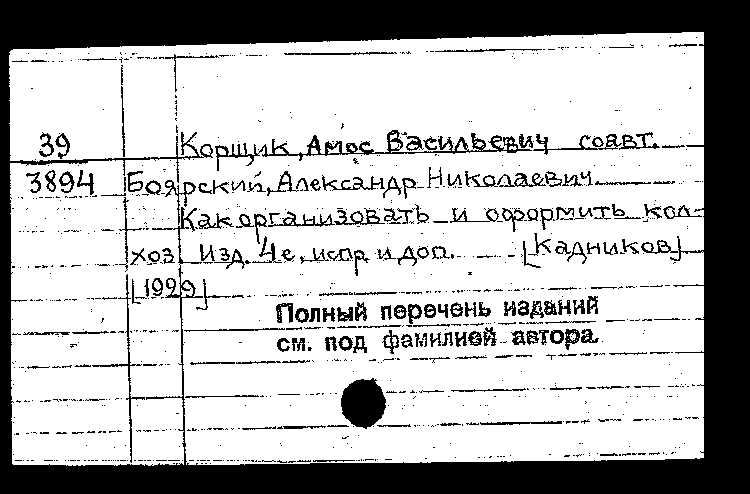 39 Корщик, Амос Васильевич соавт.
3894 Боярский, Александр Николаевич.
Как организовать и оформить кол-
хоз Изд. 4е, испр. и доп. [Кадников]
[1929]
Полный перечень изданий
см. под фамилией автора.